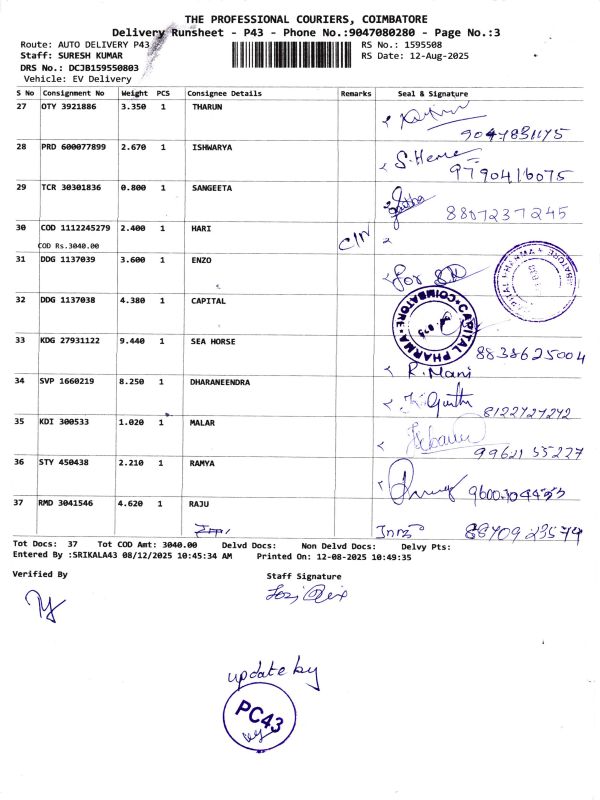 THE PROFESSIONAL COURIERS, COIMBATORE
Delivery Runsheet - P43 - Phone No.:9047080280 - Page No.:3
Route: AUTO DELIVERY P43 RS No.: 1595508
Staff: SURESH KUMAR RS Date: 12-Aug-2025
DRS No.: DCJB159550803
Vehicle: EV Delivery
S No Consignment No Weight PCS Consignee Details Remarks Seal & Signature
27 OTY 3921886 3.350 1 THARUN
9047831175
28 PRD 600077899 2.670 1 ISHWARYA
S.Hema
9790416075
29 TCR 30301836 0.800 1 SANGEETA
8807237245
30 COD 1112245279 2.400 1 HARI
COD Rs.3040.00 C/N
31 DDG 1137039 3.600 1 ENZO
for
32 DDG 1137038 4.380 1 CAPITAL
CAPITAL PHARMA COIMBATORE
33 KDG 27931122 9.440 1 SEA HORSE
8838625004
R.Mani
34 SVP 1660219 8.250 1 DHARANEENDRA
8122727272
35 KDI 300533 1.020 1 MALAR
99621 55227
36 STY 450438 2.210 1 RAMYA
37 RMD 3041546 4.620 1 RAJU
Tot Docs: 37 Tot COD Amt: 3040.00 Delvd Docs: Non Delvd Docs: Delvy Pts:
Entered By :SRIKALA43 08/12/2025 10:45:34 AM Printed On: 12-08-2025 10:49:35
Verified By Staff Signature
update by
PC43